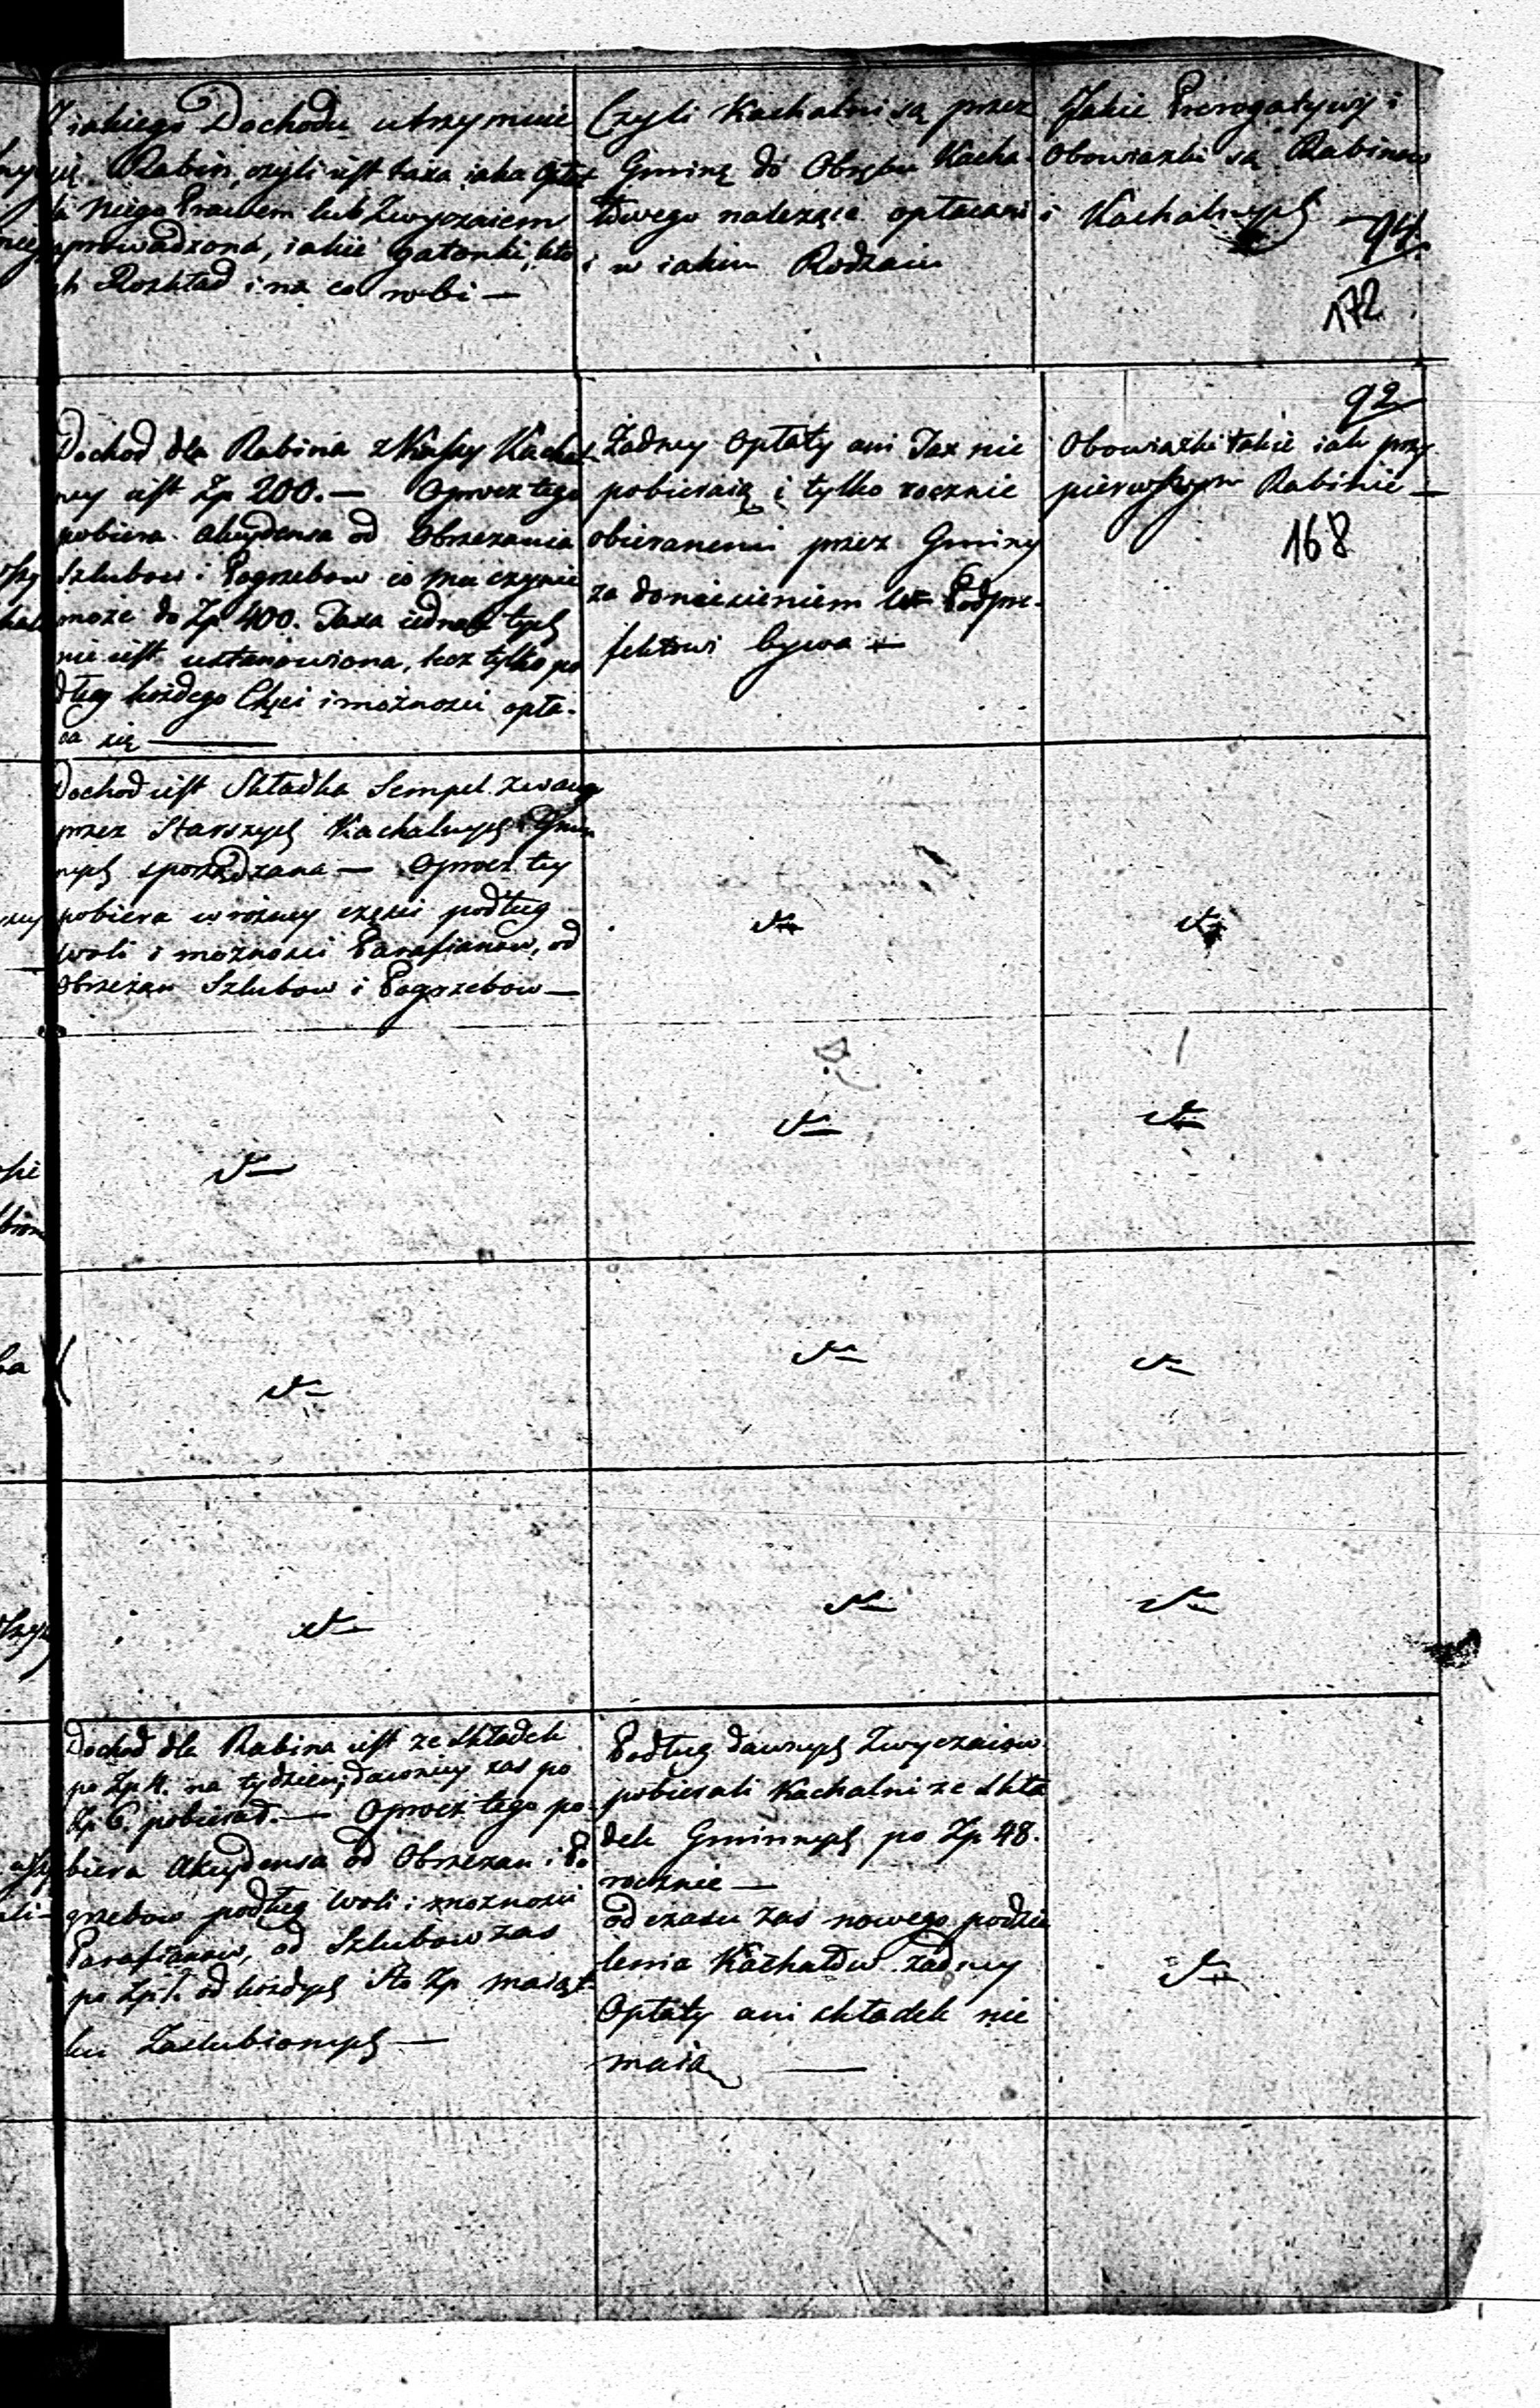 Z iakiego Dochodu utrzymuie
się Rabin, czyli iest taxa iaka opłat
dla niego Prawem lub Zwyczaiem
wprowadzona, iakie gatonki, kto
ich Rozkład i na co robi —
Czyli Kachalni są przez
Gminę do Obrębu Kacha-
łowego należące opłacani
i w iakim Rodzaiu
Jakie Prerogatywy i
Obowiązki są Rabinow
i Kachalnych
94
172
92
Dochod dla Rabina z Kassy Kachal-
ney iest Zp 200. — Oprocz tego
pobiera Akcydensa od Obrzezania
Szlubow i Pogrzebow co mu czynić
może do Zp 400. Taxa iednak tych
nie iest ustanowiona, lecz tylko po
dług każdego Chęci i możnosci opła-
ca się —
Żadney Opłaty ani Tax nie
pobieraią i tylko rocznie
obieranemi przez Gminy
za doniesieniem Podpre-
fektowi bywa —
Obowiązki takie iak przy
pierwszym Rabinie —
168
Dochod iest Składka Sempel zwana
przez Starszych Kachalnych Gmin
nych sporządzana — Oprocz tey
pobiera w rożney części podług
woli i możnosci Parafianow, od
Obrzezan Szlubow i Pogrzebow —
Dochod dla Rabina iest ze składek
po Zp 4. na tydzien, dawniey zas po
Zp 6. pobierał. — Oprocz tego po-
biera Akcydensa od Obrzezan i Po
grzebow podług woli i możnosci
Parafianow, od Szlubow zas
po Zp 1. od każdych sto Zp maiąt-
ku Zaslubionych —
Podług dawnych Zwyczaiow
pobierali Kachalni ze skła
dek Gminnych po Zp 48.
rocznie —
od czasu zas nowego podzie
lenia Kachałow żadney
Opłaty ani składek nie
maią —